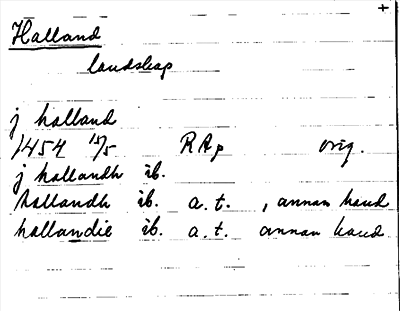 +
Halland
landskap
j halland
1454 15/5 RAp orig.
j hallandh ib.
hallandh ib. a.t. , annan hand
hallandie ib. a.t. annan hand